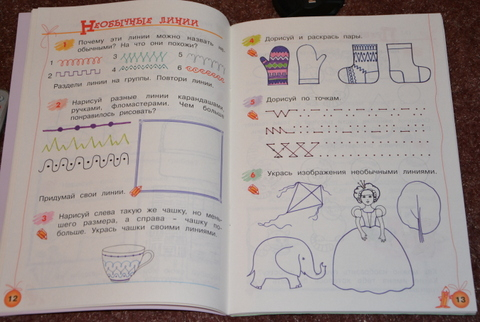 НЕОБЫЧНЫЕ ЛИНИИ
1 Почему эти линии можно назвать не-
обычными? На что они похожи?
1 3 5
2 4 6
Раздели линии на группы. Повтори линии.
2 Нарисуй разные линии карандашами,
ручками, фломастерами. Чем больше
понравилось рисовать?
Придумай свои линии.
3 Нарисуй слева такую же чашку, но мень-
шего размера, а справа – чашку по-
больше. Укрась чашки своими линиями.
12
4 Дорисуй и раскрась пары.
5 Дорисуй по точкам.
6 Укрась изображения необычными линиями.
13